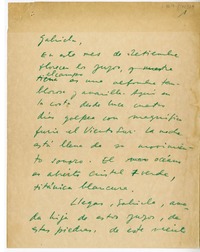 Gabriela,
En este mes de Setiembre
florecen los yuyos, y nuestro
el campo
tiene es una alfombra tem-
blorosa y amarilla. Aquí en
la costa, desde hace cuatro
días golpea con magnífica
furia el Viento Sur. La noche
está llena de su movimien-
to sonoro. El mar océano
es abierto cristal verde,
titánica blancura.
Llegas, Gabriela, ama-
da hija de estos yuyos, de
estas piedras, de este viento